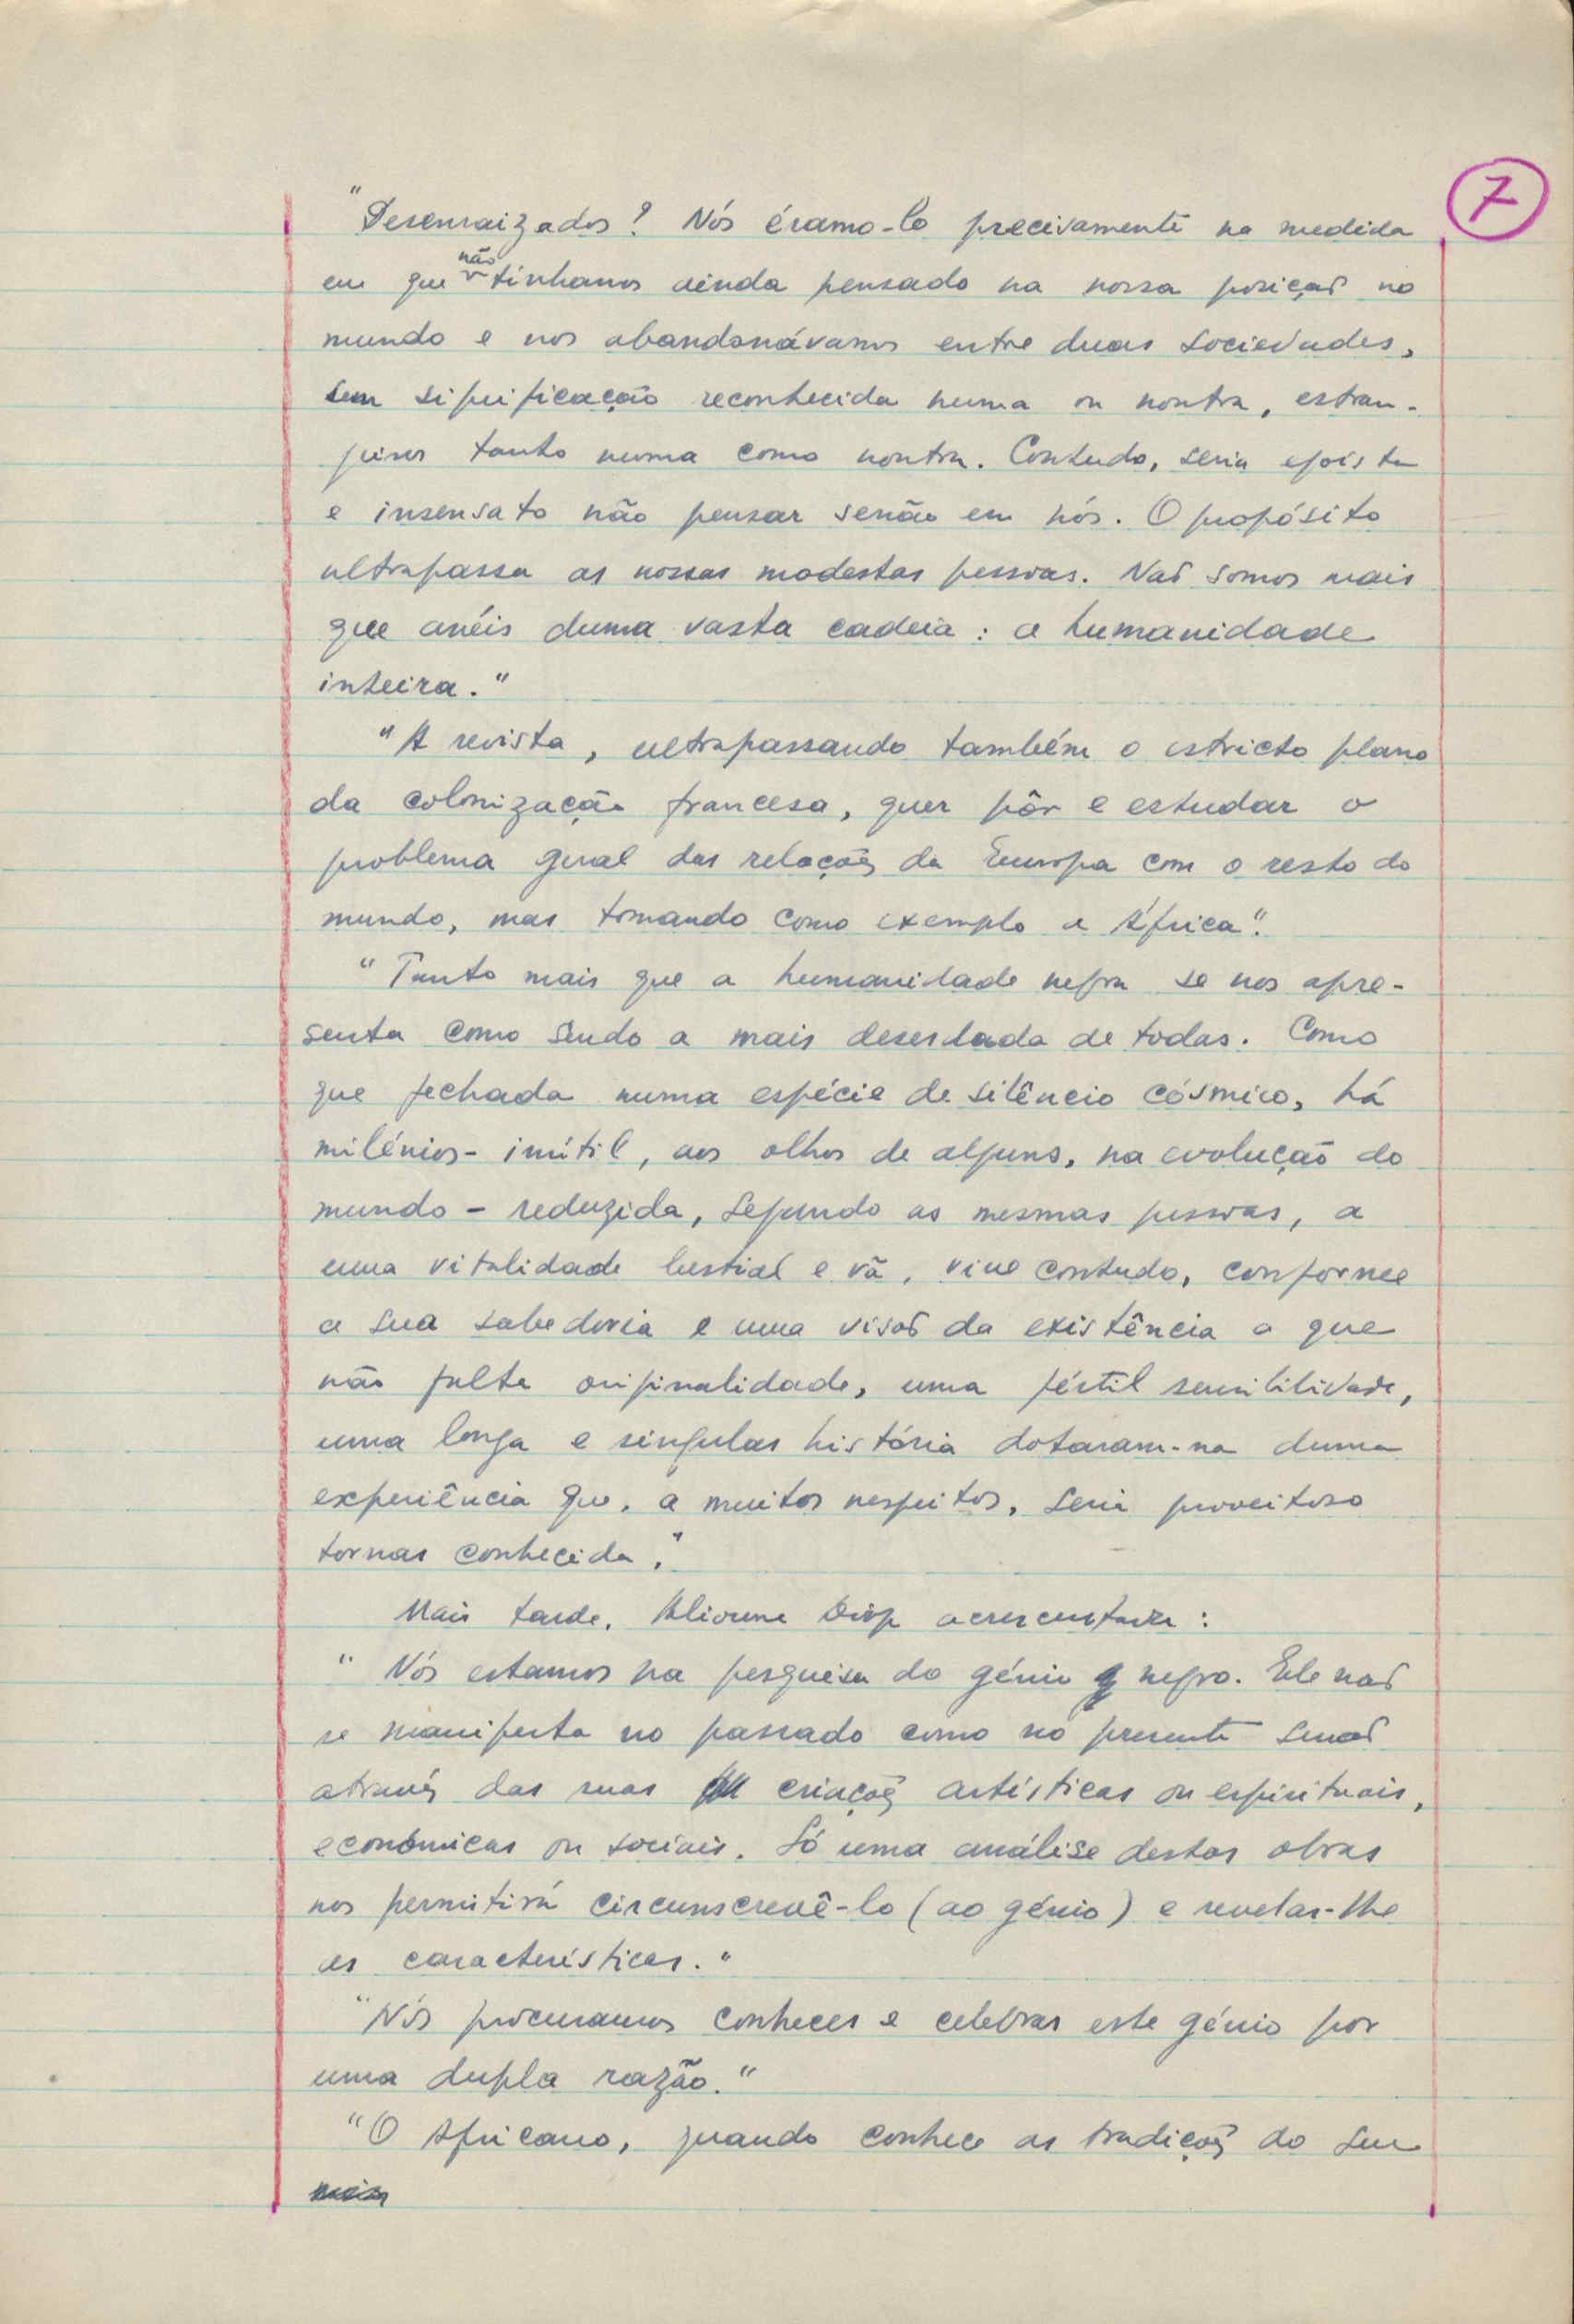 7
"Desenraizados? Nós éramo-lo precisamente na medida
em que não tínhamos ainda pensado na nossa posição no
mundo e nos abandonávamos entre duas sociedades,
sem significação reconhecida numa ou noutra, estran-
geiros tanto numa como noutra. Contudo, seria egoísta
e insensato não pensar senão em nós. O propósito
ultrapassa as nossas modestas pessoas. Não somos mais
que anéis duma vasta cadeia: a humanidade
inteira."
"A revista, ultrapassando também o estricto plano
da colonização francesa, quer pôr e estudar o
problema geral das relações da Europa com o resto do
mundo, mas tomando como exemplo a África".
"Tanto mais que a humanidade negra se nos apre-
senta como sendo a mais deserdada de todas. Como
que fechada numa espécie de silêncio cósmico, há
milénios - inútil, aos olhos de alguns, na evolução do
mundo - reduzida, segundo as mesmas pessoas, a
uma vitalidade bestial e vã, vive contudo, conforme
a sua sabedoria e uma visão da existência a que
não falta originalidade, uma fértil sensibilidade,
uma longa e singular história dotaram-na duma
experiência que, a muitos respeitos, seria proveitoso
tornar conhecida."
Mais tarde, Alioune Diop acrescentava:
"Nós estamos na pesquisa do génio negro. Ele não
se manifesta no passado como no presente senão
através das suas criações artísticas ou espirituais,
económicas ou sociais. Só uma análise destas obras
nos permitirá circunscrevê-lo (ao génio) e revelar-lhe
as características."
"Nós procuramos conhecer e celebrar este génio por
uma dupla razão."
"O Africano, quando conhece as tradições do seu